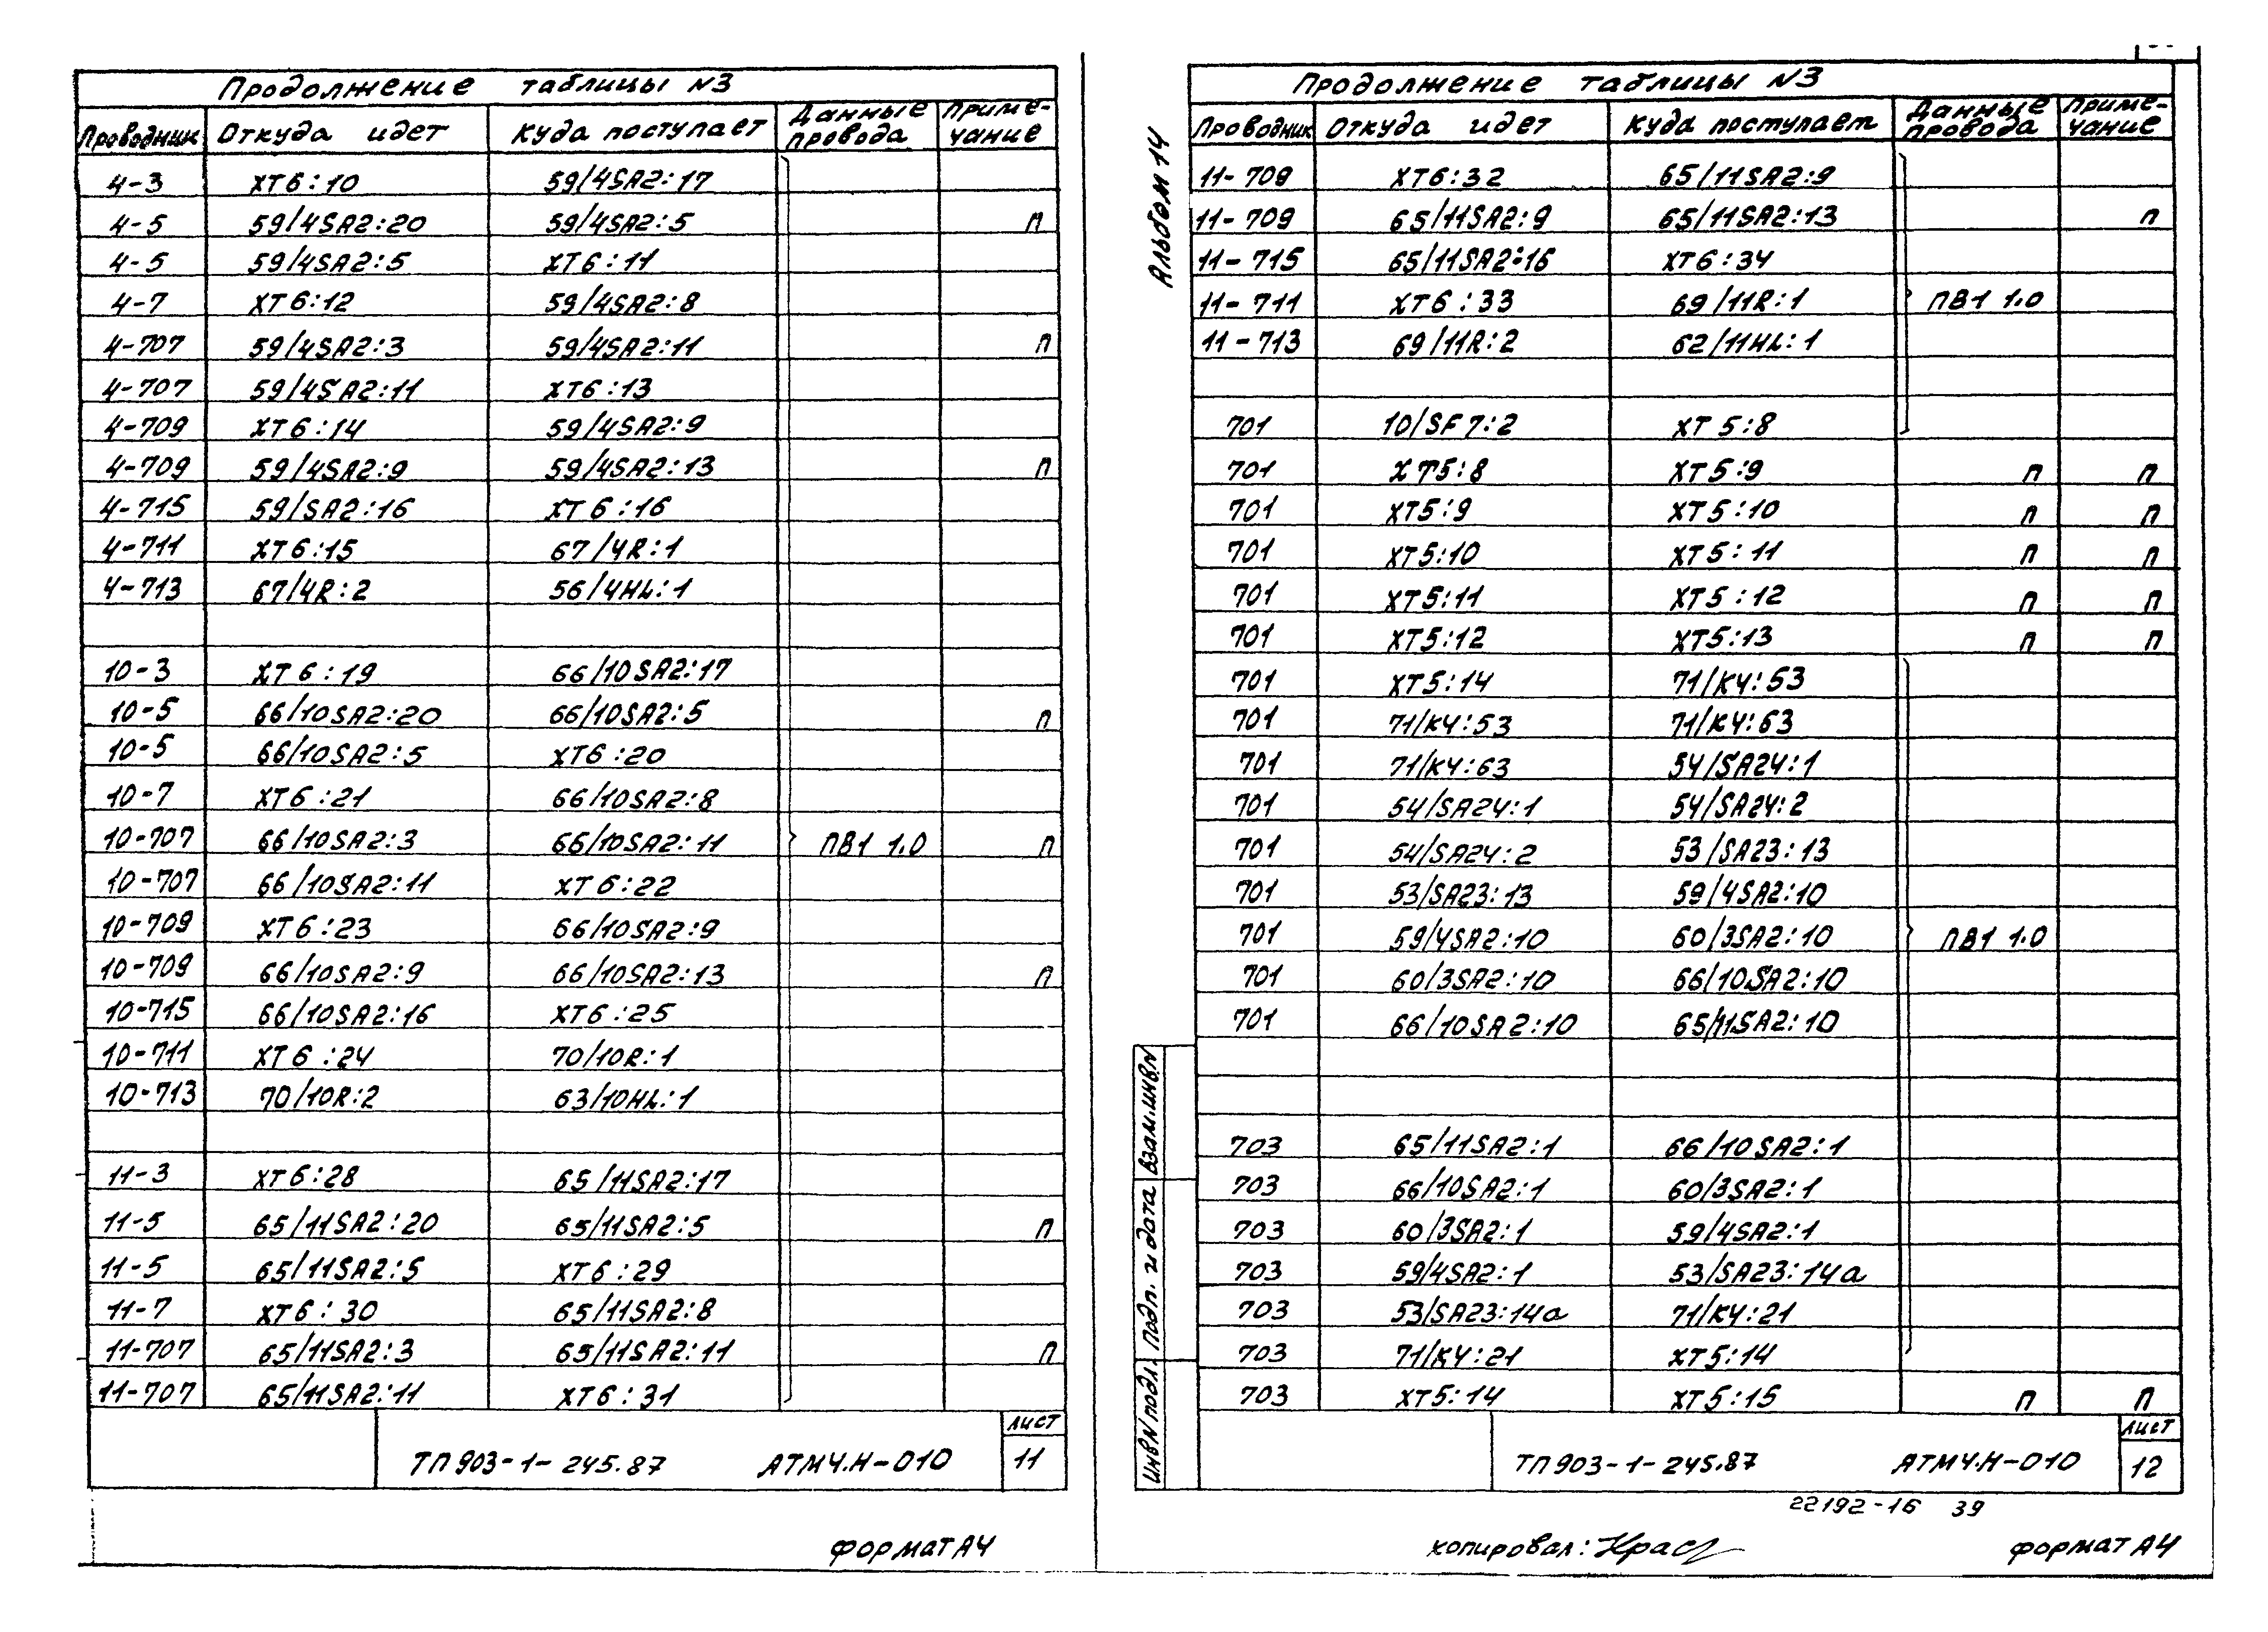 Продолжение таблицы N3
Проводник Откуда идет Куда поступает Данные провода Примечание
4-3 XT6:10 59/4SA2:17
4-5 59/4SA2:20 59/4SA2:5 п
4-5 59/4SA2:5 XT6:11
4-7 XT6:12 59/4SA2:8
4-707 59/4SA2:3 59/4SA2:11 п
4-707 59/4SA2:11 XT6:13
4-709 XT6:14 59/4SA2:9
4-709 59/4SA2:9 59/4SA2:13 п
4-715 59/SA2:16 XT6:16
4-711 XT6:15 67/4R:1
4-713 67/4R:2 56/4HL:1
10-3 XT6:19 66/10SA2:17
10-5 66/10SA2:20 66/10SA2:5 п
10-5 66/10SA2:5 XT6:20
10-7 XT6:21 66/10SA2:8
10-707 66/10SA2:3 66/10SA2:11 ПВ1 1.0 п
10-707 66/10SA2:11 XT6:22
10-709 XT6:23 66/10SA2:9
10-709 66/10SA2:9 66/10SA2:13 п
10-715 66/10SA2:16 XT6:25
10-711 XT6:24 70/10R:1
10-713 70/10R:2 63/10HL:1
11-3 XT6:28 65/11SA2:17
11-5 65/11SA2:20 65/11SA2:5 п
11-5 65/11SA2:5 XT6:29
11-7 XT6:30 65/11SA2:8
11-707 65/11SA2:3 65/11SA2:11 п
11-707 65/11SA2:11 XT6:31
ТП903-1-245.87 АТМ4.Н-010 Лист 11
Формат А4
Альбом 14
Продолжение таблицы N3
Проводник Откуда идет Куда поступает Данные провода Примечание
11-709 XT6:32 65/11SA2:9
11-709 65/11SA2:9 65/11SA2:13 п
11-715 65/11SA2:16 XT6:34
11-711 XT6:33 69/11R:1 ПВ1 1.0
11-713 69/11R:2 62/11HL:1
701 10/SF7:2 XT5:8
701 XT5:8 XT5:9 п п
701 XT5:9 XT5:10 п п
701 XT5:10 XT5:11 п п
701 XT5:11 XT5:12 п п
701 XT5:12 XT5:13 п п
701 XT5:14 71/K4:53
701 71/K4:53 71/K4:63
701 71/K4:63 54/SA24:1
701 54/SA24:1 54/SA24:2
701 54/SA24:2 53/SA23:13
701 53/SA23:13 59/4SA2:10
701 59/4SA2:10 60/3SA2:10 ПВ1 1.0
701 60/3SA2:10 66/10SA2:10
701 66/10SA2:10 65/11SA2:10
703 65/11SA2:1 66/10SA2:1
703 66/10SA2:1 60/3SA2:1
703 60/3SA2:1 59/4SA2:1
703 59/4SA2:1 53/SA23:14а
703 53/SA23:14а 71/K4:21
703 71/K4:21 XT5:14
703 XT5:14 XT5:15 п п
Инв N подл. Подп. и дата Взам.инв.N
ТП903-1-245.87 АТМ4.Н-010 Лист 12
22192-16 39
Копировал: Формат А4